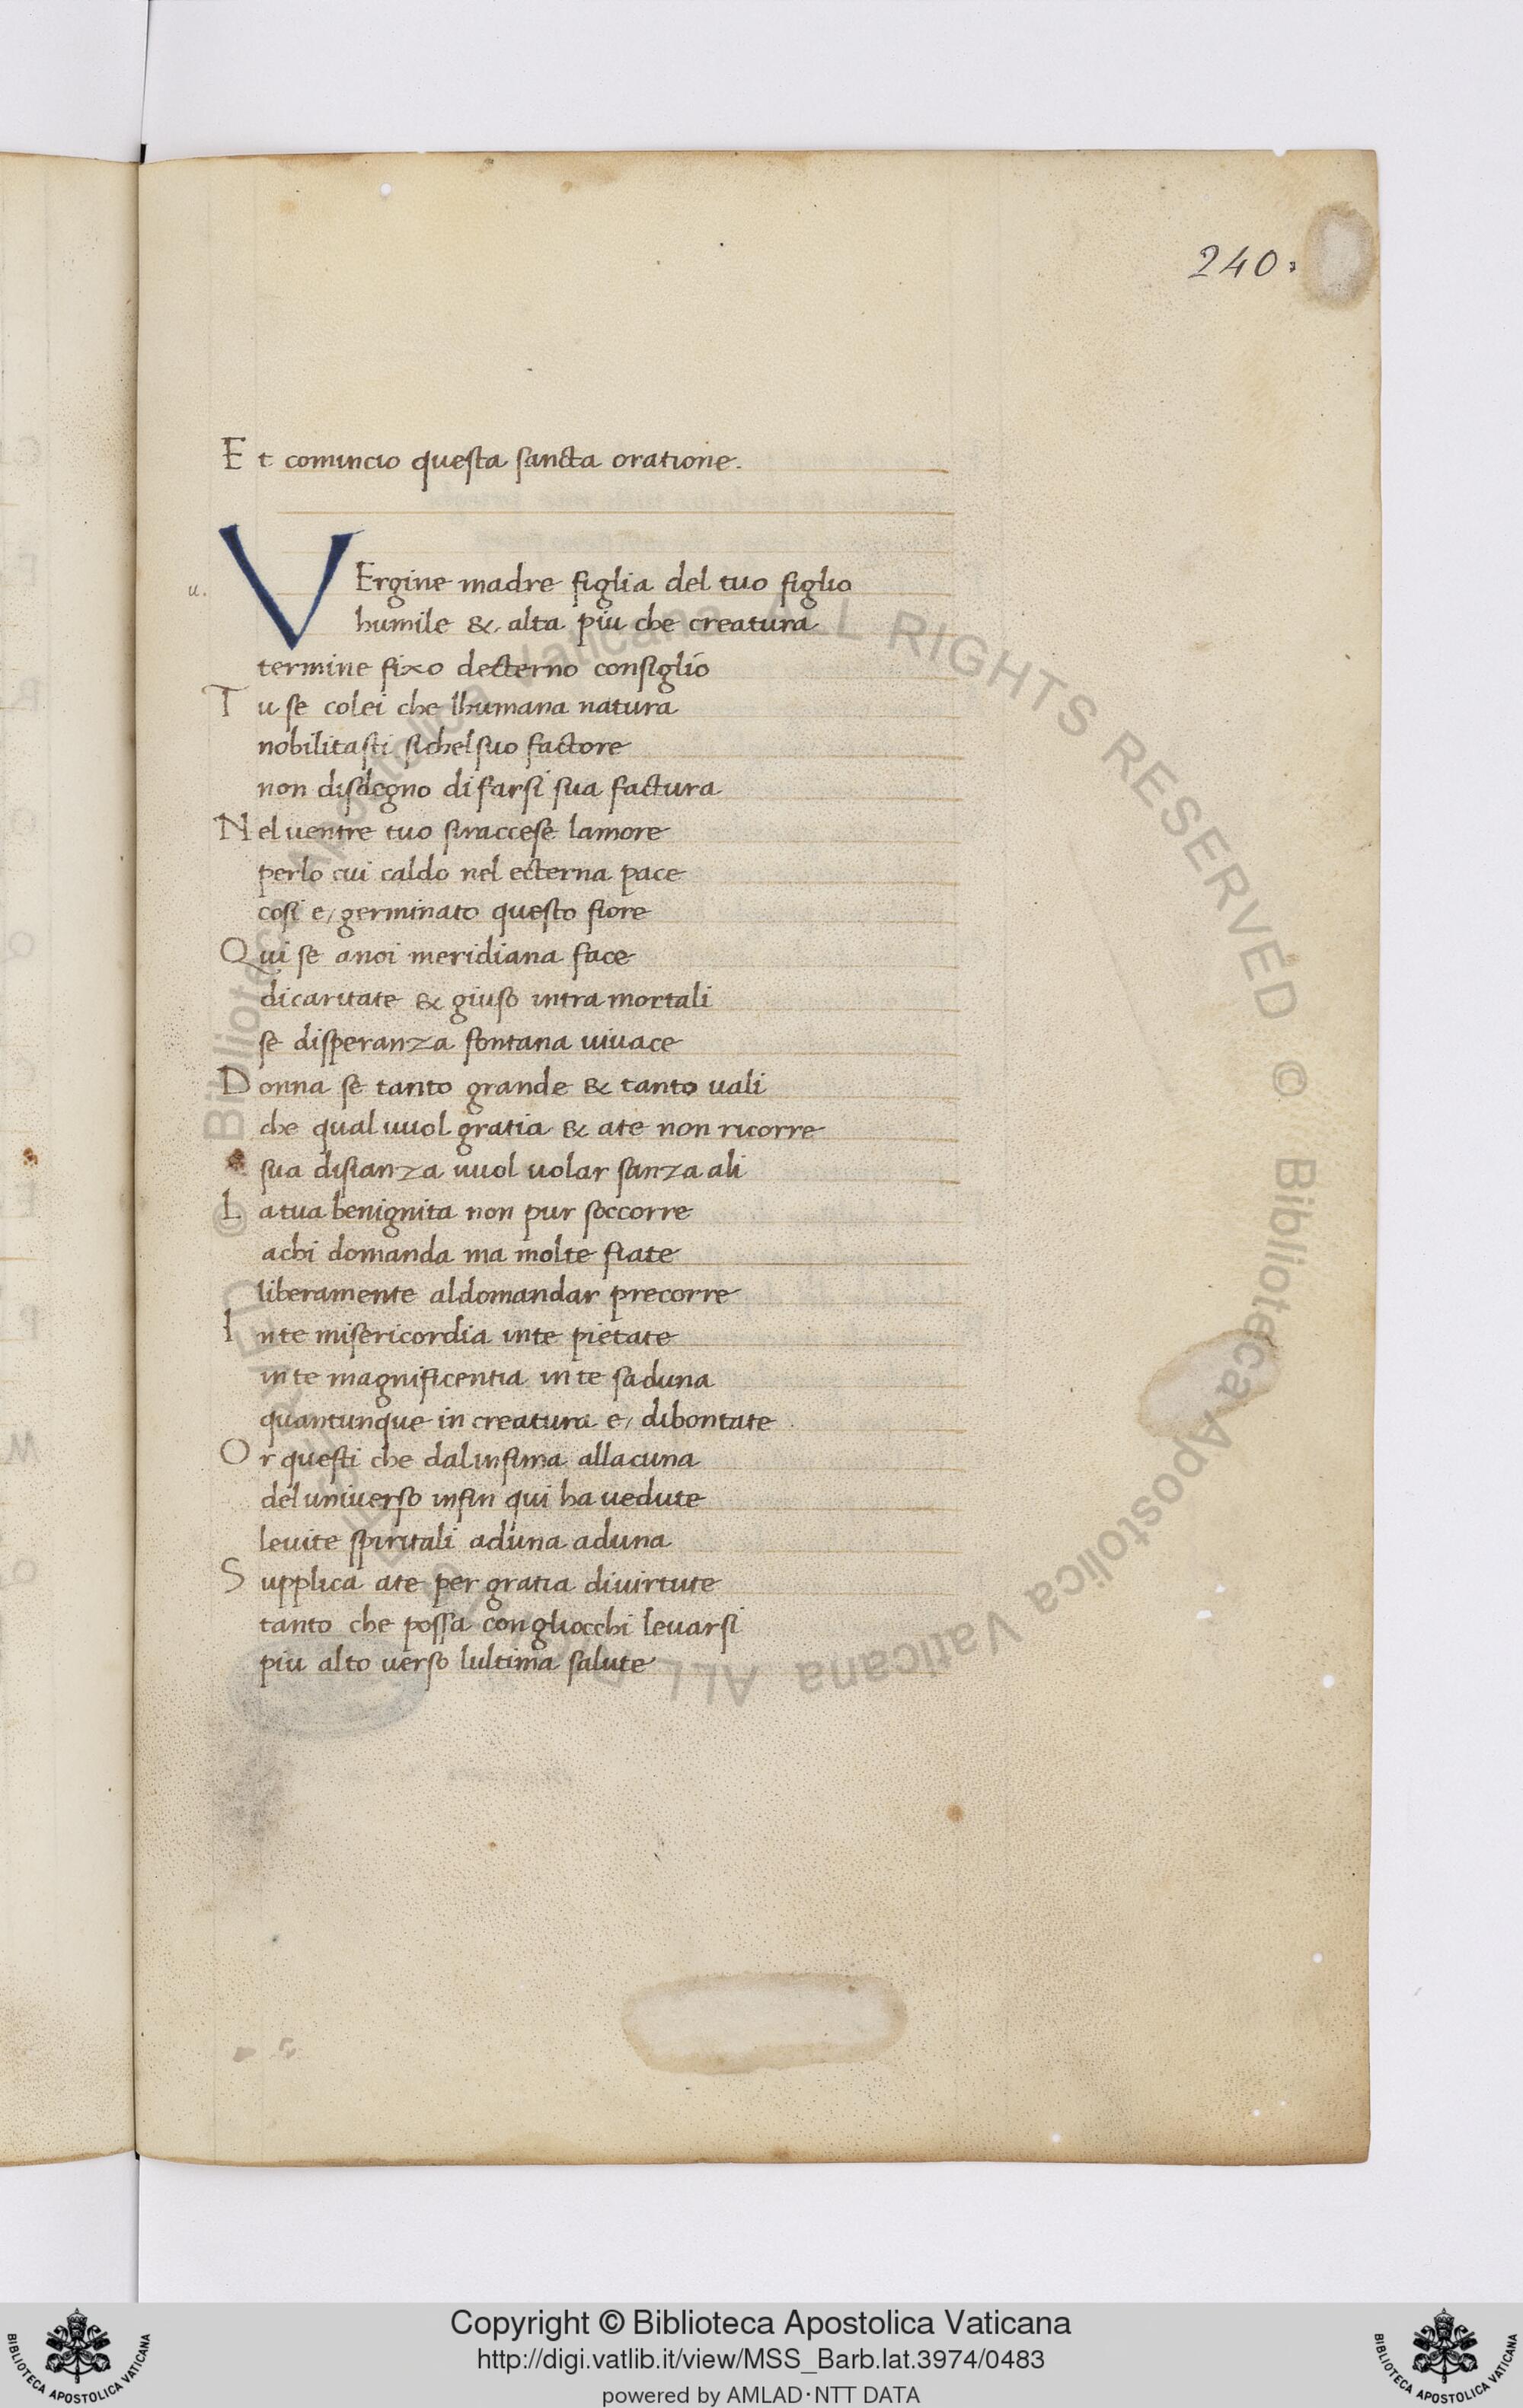 240.
Et comincio questa sancta oratione.
u.
VErgine madre figlia del tuo figlio
humile & alta piu che creatura
termine fixo decterno consiglio
Tu se colei che lhumana natura
nobilitasti sichel suo factore
non disdegno di farsi sua factura
Nel uentre tuo siraccese lamore
perlo cui caldo nel ecterna pace
cosi e/ germinato questo fiore
Qui se anoi meridiana face
dicaritate & giuso intra mortali
se disperanza fontana uiuace
Donna se tanto grande & tanto uali
che qual uuol gratia & ate non ricorre
sua disianza uuol uolar sanza ali
La tua benignita non pur soccorre
achi domanda ma molte fiate
liberamente aldomandar precorre
Inte misericordia inte pietate
inte magnificentia inte saduna
quantunque in creatura e/ dibontate
Or questi che dalinfima allacuna
del uniuerso infin qui ha uedute
leuite spiritali aduna aduna
Supplica ate per gratia diuirtute
tanto che possa con gliocchi leuarsi
piu alto uerso lultima salute
© Biblioteca Apostolica Vaticana ALL RIGHTS RESERVED © Biblioteca Apostolica Vaticana ALL RIGHTS RESERVED
Copyright © Biblioteca Apostolica Vaticana
http://digi.vatlib.it/view/MSS_Barb.lat.3974/0483
powered by AMLAD·NTT DATA
BIBLIOTECA APOSTOLICA VATICANA
BIBLIOTECA APOSTOLICA VATICANA